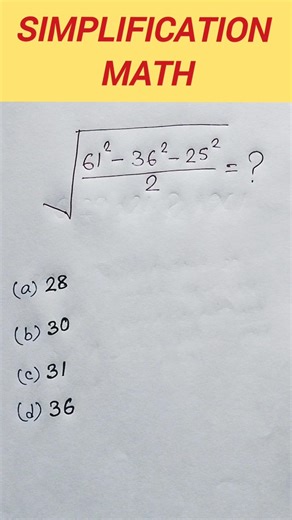 SIMPLIFICATION
MATH
√((61² - 36² - 25²)/2) = ?
(a) 28
(b) 30
(c) 31
(d) 36